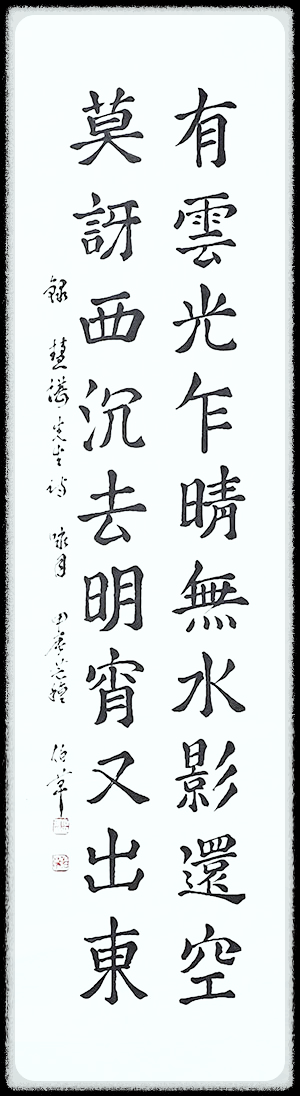 有雲光乍晴無水影還空
莫訝西沉去明宵又出東
錄 先生詩 咏月